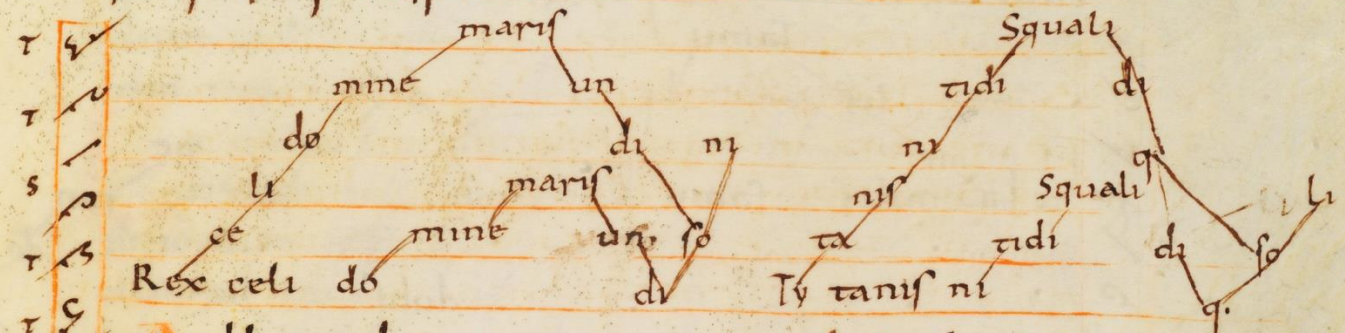 T maris Squali
mine un tidi di
T do di ni ni q
S li maris nis Squali li
T ce mine un so ta tidi di so
Rex celi do di Ty tanis ni q.
T